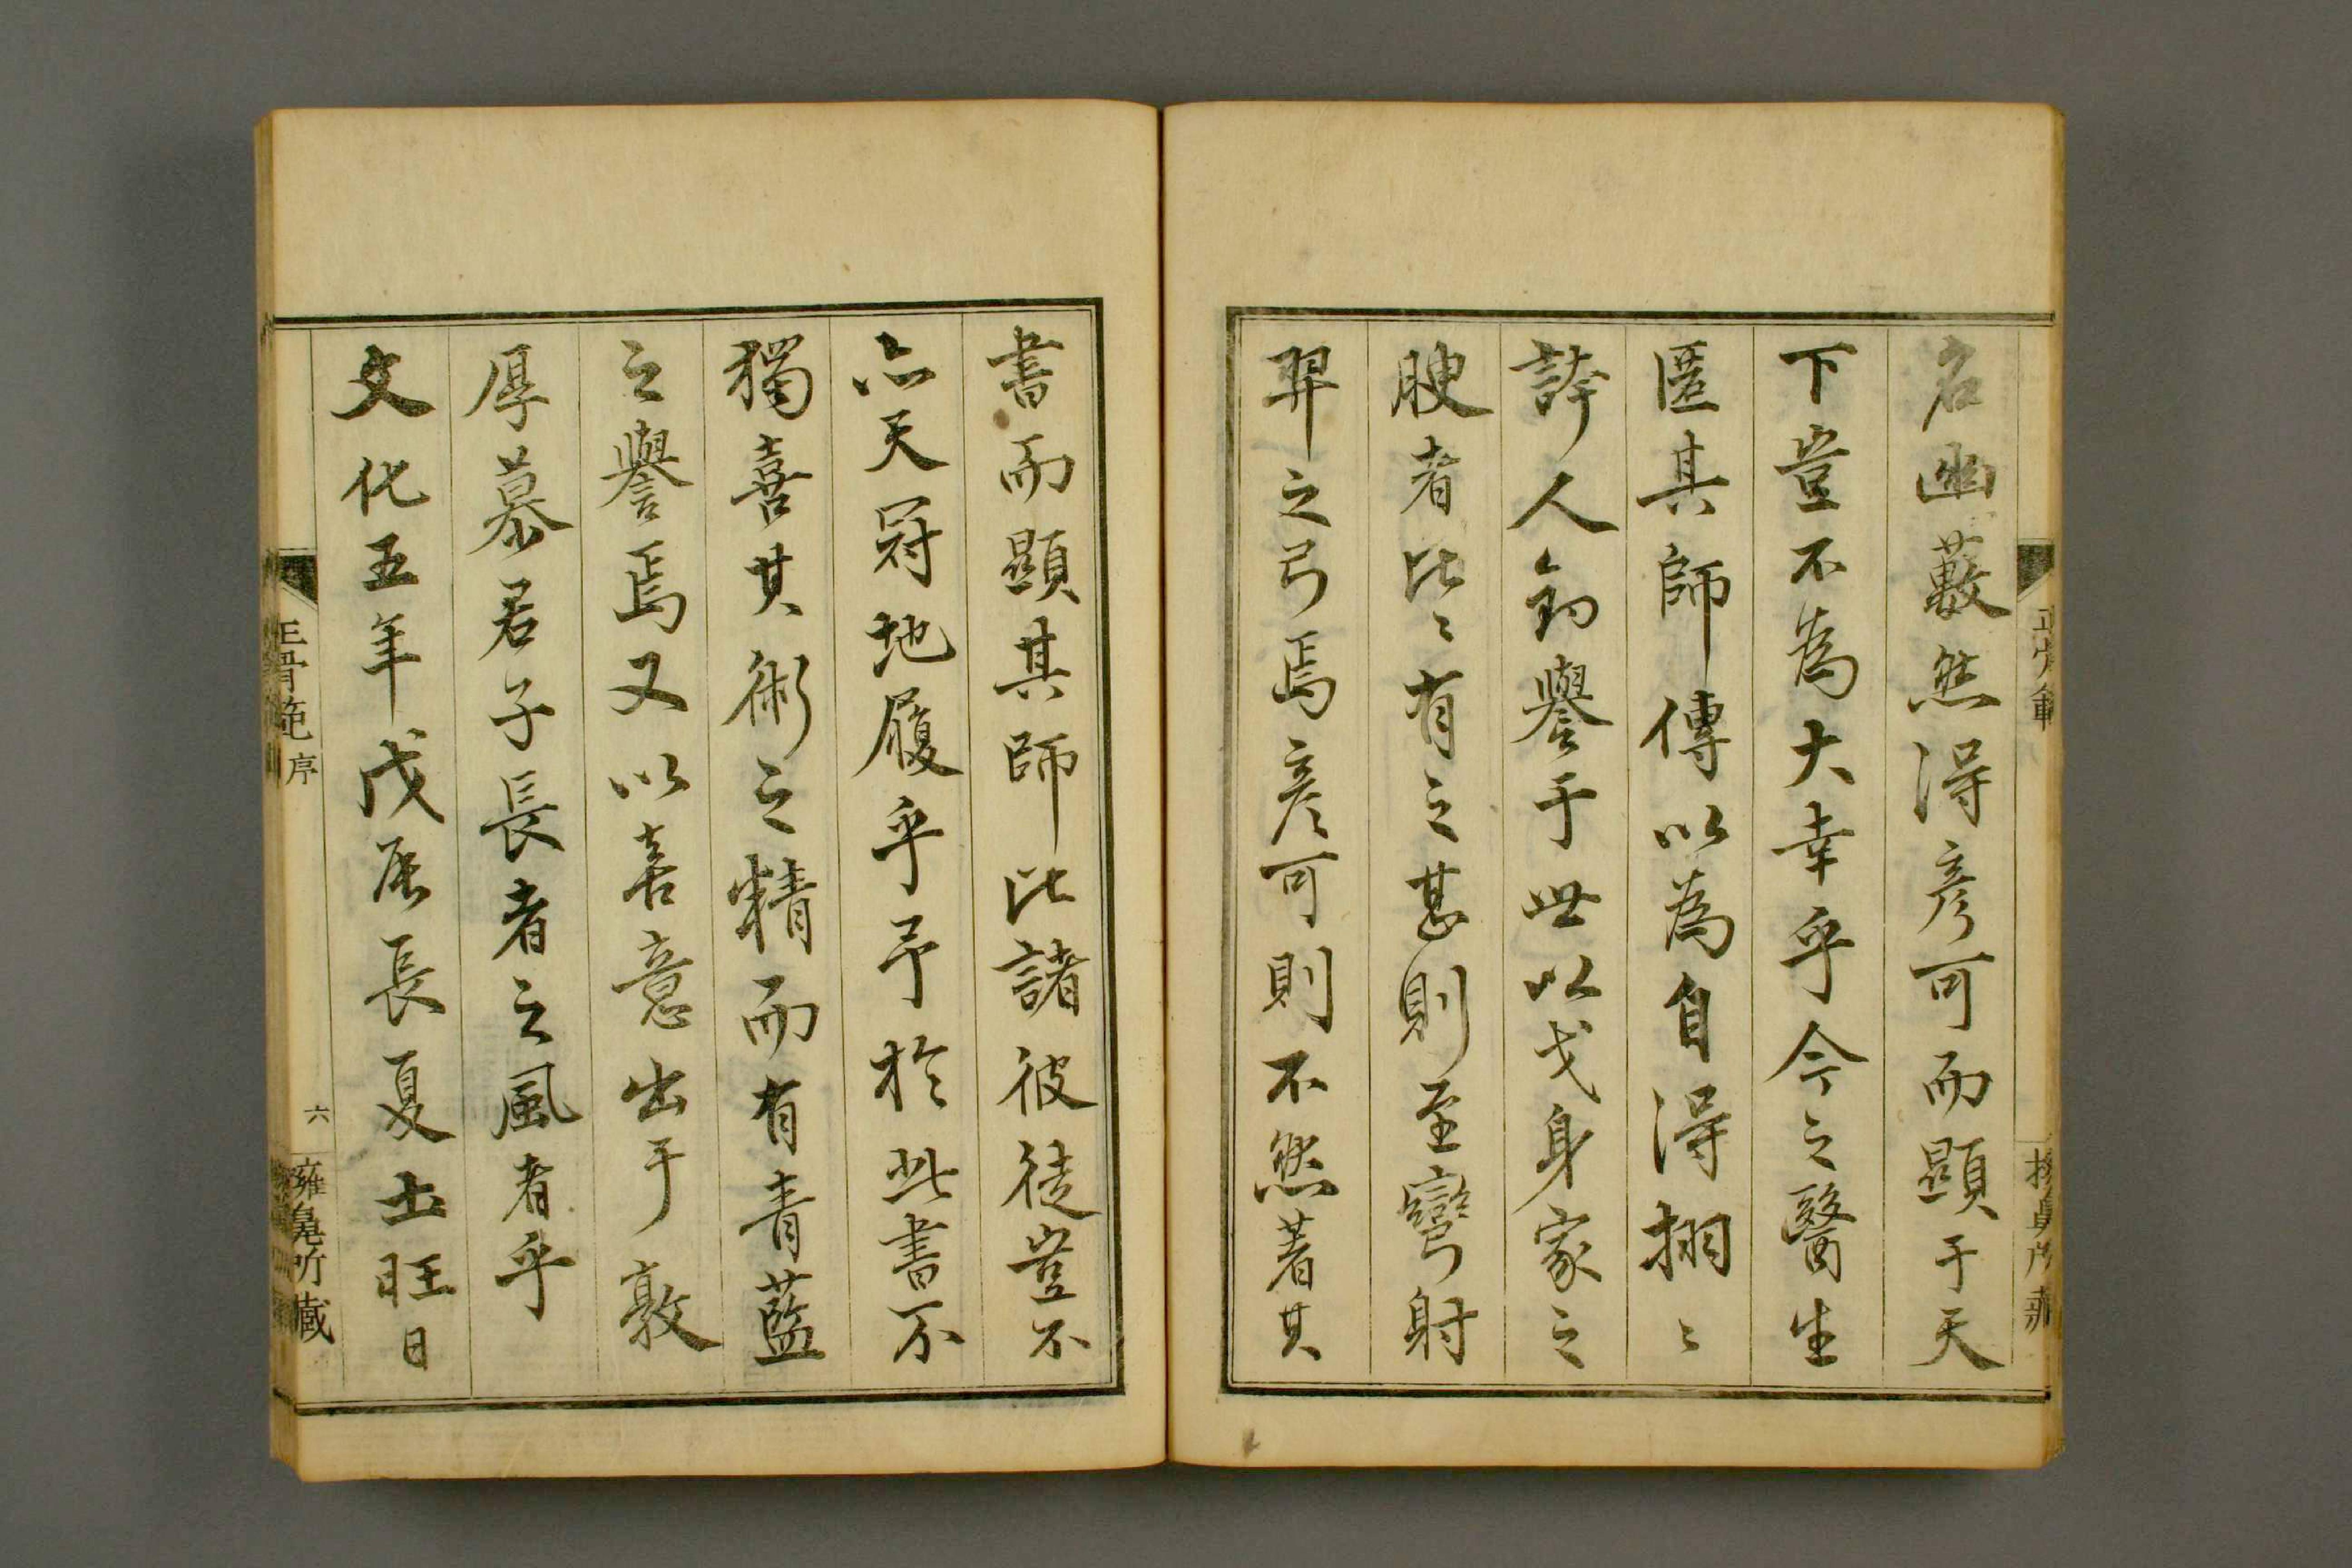 名幽藪然得彦可而顕于天
下豈不為大幸乎今之醫生
匿其師傳以為自得栩〻
誇人釣譽于世以戈身家之
腴者比〻有之甚則至彎射
羿之弓焉彦可則不然著其
書而顕其師比諸彼徒豈不
亦天冠地履乎予於此書不
獨喜其術之精而有青藍
之譽焉又以喜意出于敦
厚慕君子長者之風者乎
文化五年戊辰長夏土旺日
正骨範序
六
雍鳧所藏